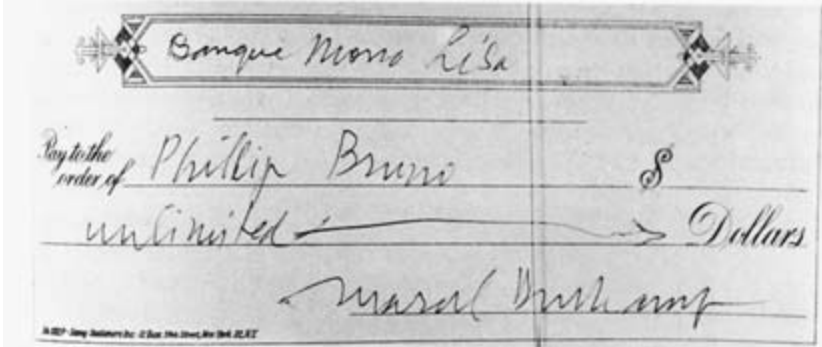 Banque Mona Lisa
Pay to the order of Phillip Bruno $
unlimited Dollars
Marcel Duchamp
New York